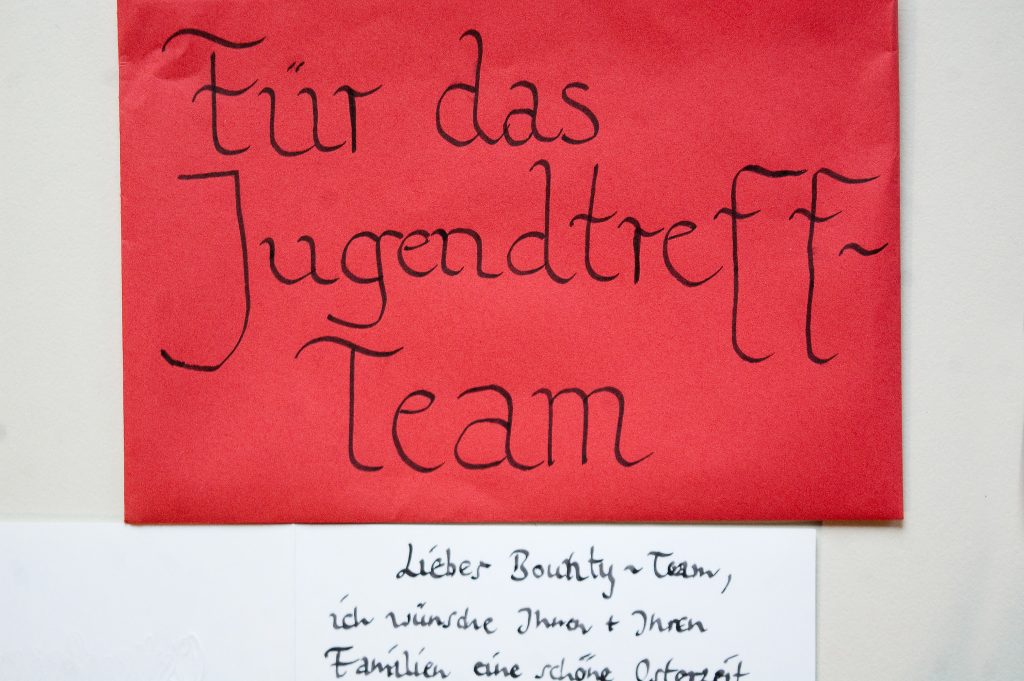 Für das
Jugendtreff~
Team
Lieber Bounty~Team,
ich wünsche Ihnen + Ihren
Familien eine schöne Osterzeit